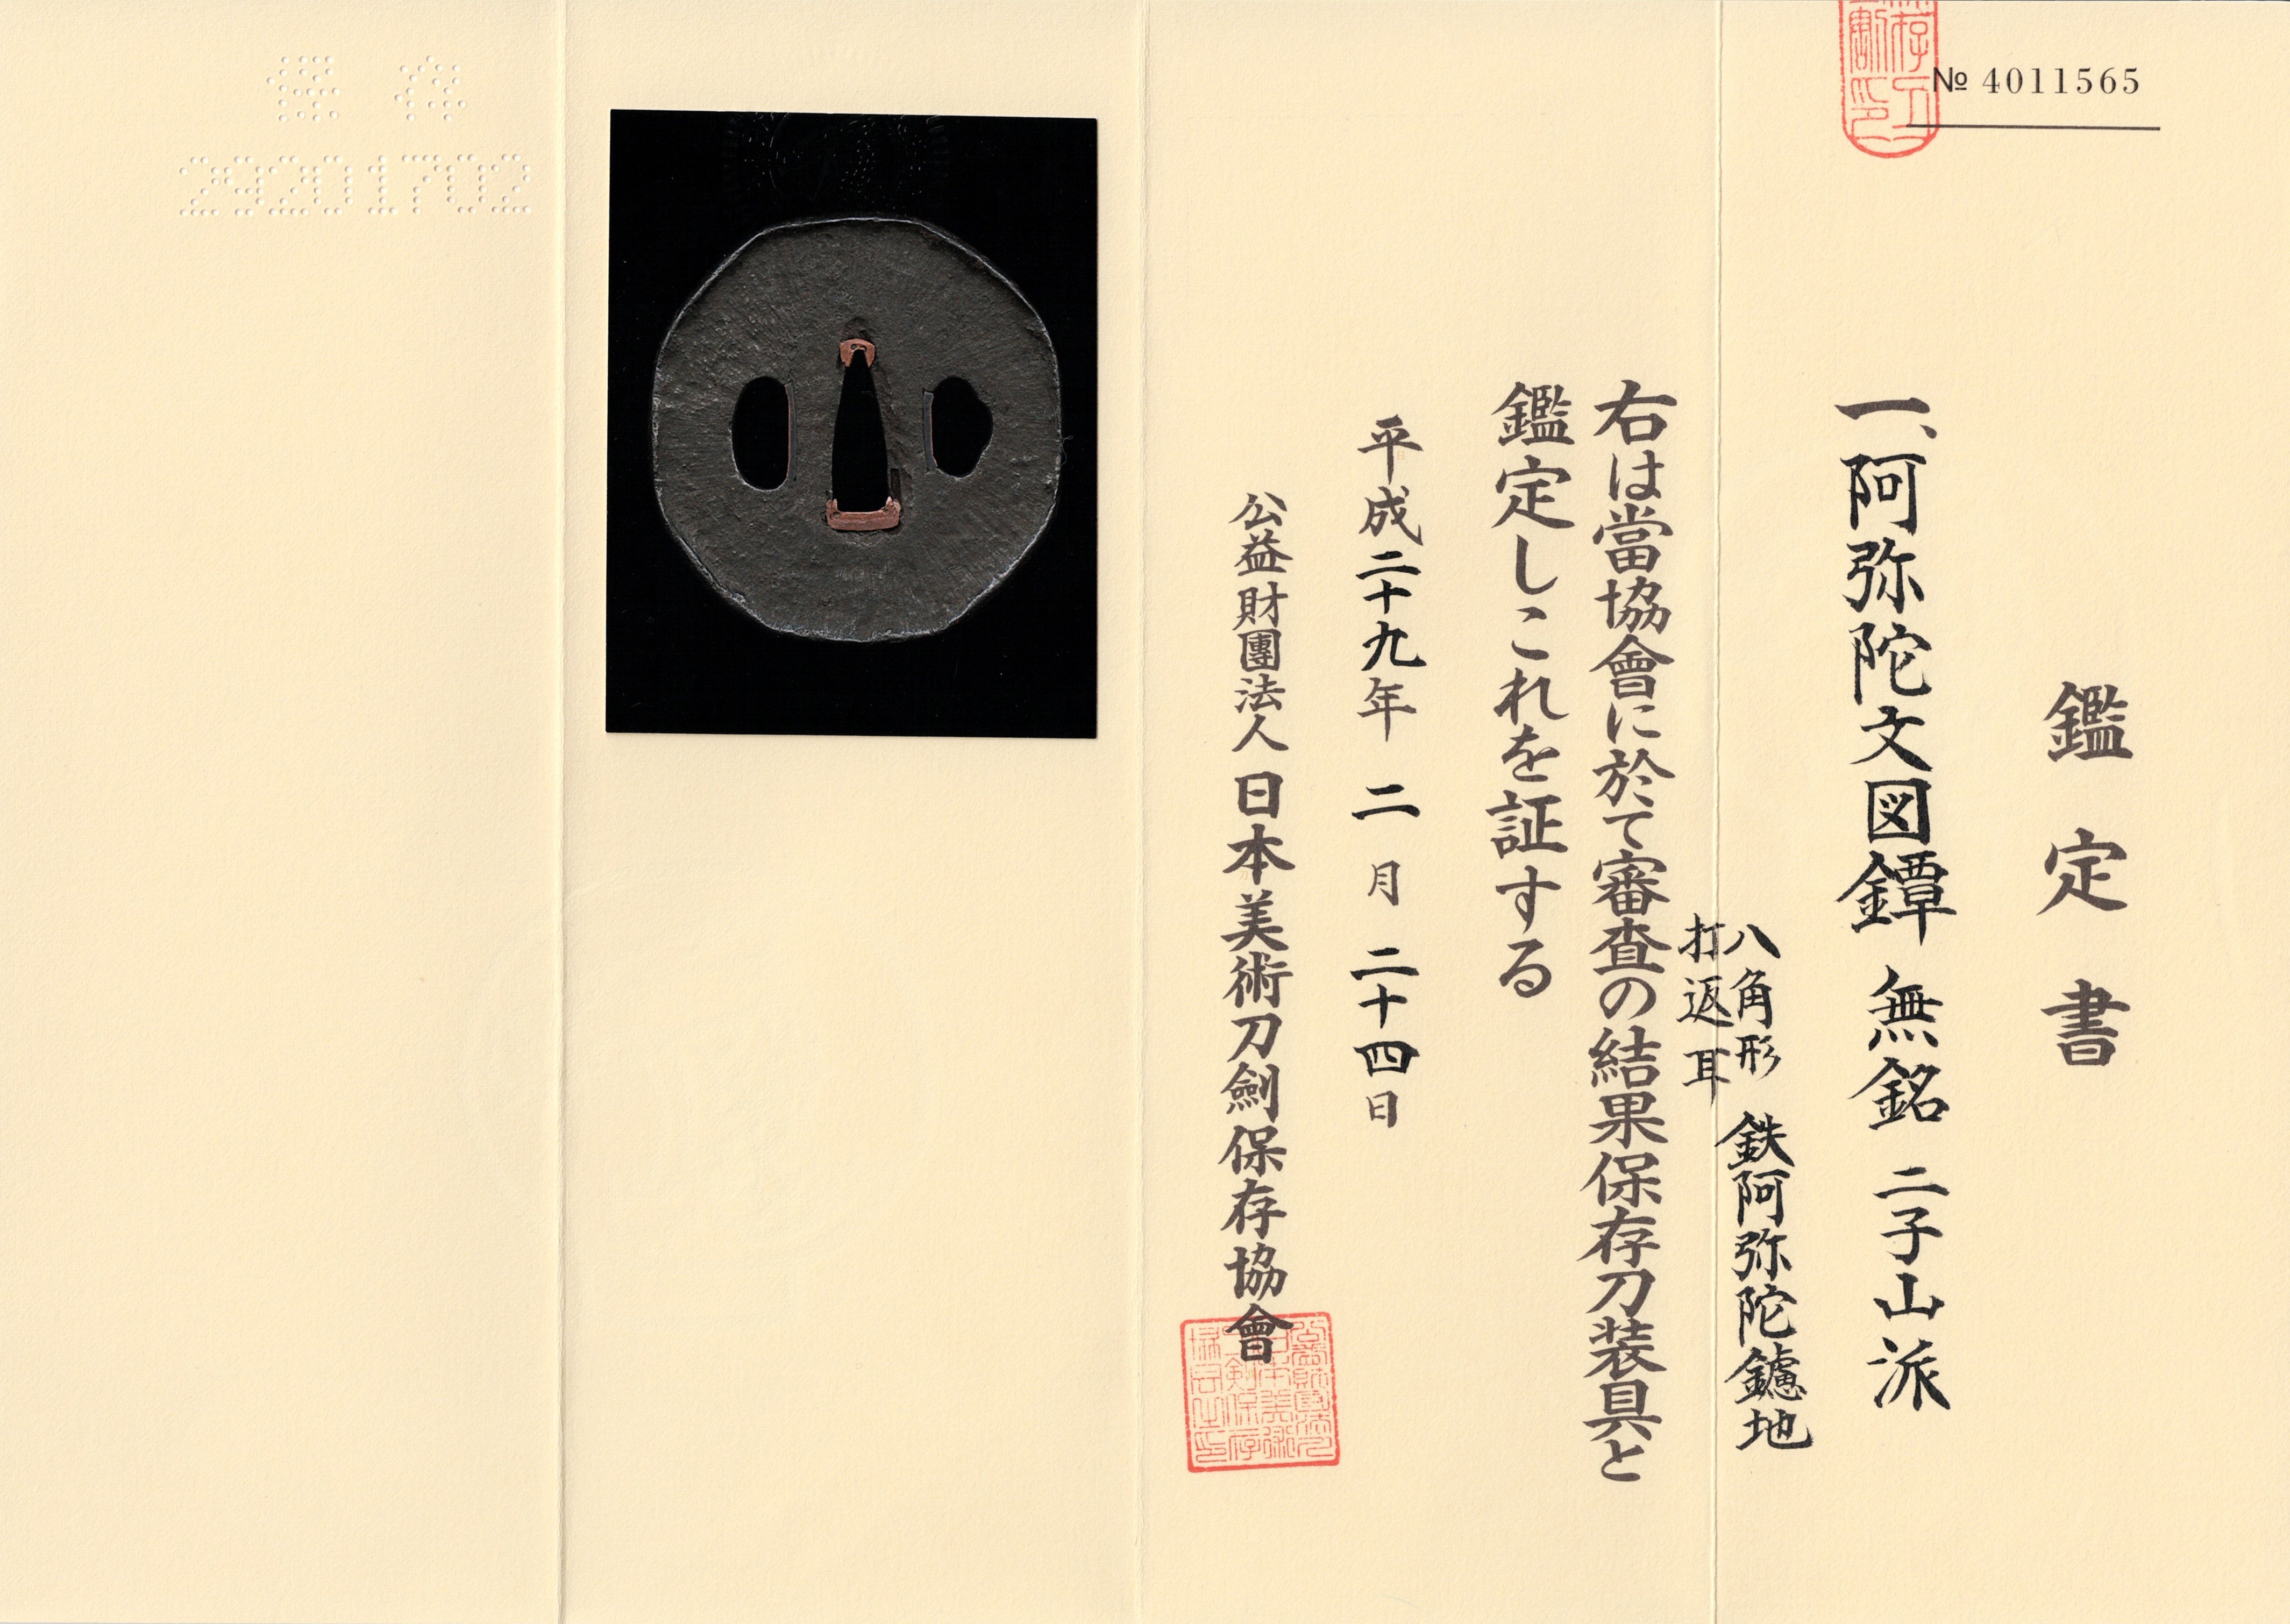 № 4011565
鑑定書
一、阿弥陀文図鐔 無銘 二子山派
八角形 鉄阿弥陀鑢地
打返耳
右は當協會に於て審査の結果保存刀装具と
鑑定しこれを証する
平成二十九年 二月 二十四日
公益財團法人 日本美術刀劍保存協會
保存
29201702